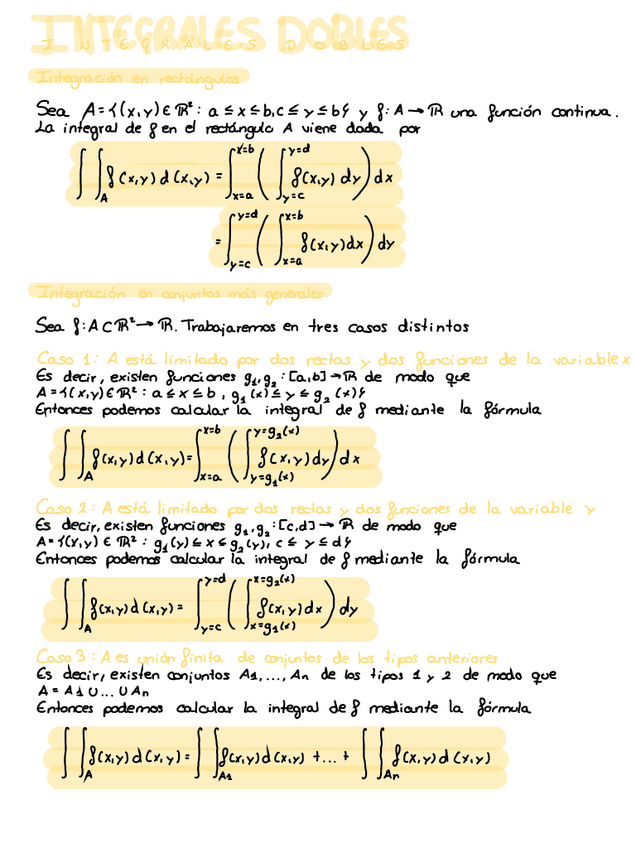 INTEGRALES DOBLES
INTEGRALES DOBLES
Integración en rectángulos
Sea A={(x,y)∈ℝ²: a≤x≤b, c≤y≤b} y f: A→ℝ una función continua.
La integral de f en el rectángulo A viene dada por
∫∫_A f(x,y) d(x,y) = ∫_{x=a}^{x=b} ( ∫_{y=c}^{y=d} f(x,y) dy ) dx
= ∫_{y=c}^{y=d} ( ∫_{x=a}^{x=b} f(x,y) dx ) dy
Integración en conjuntos más generales
Sea f: A⊂ℝ²→ℝ. Trabajaremos en tres casos distintos
Caso 1: A está limitado por dos rectas y dos funciones de la variable x
Es decir, existen funciones g₁, g₂: [a,b]→ℝ de modo que
A={(x,y)∈ℝ²: a≤x≤b, g₁(x)≤y≤g₂(x)}
Entonces podemos calcular la integral de f mediante la fórmula
∫∫_A f(x,y) d(x,y) = ∫_{x=a}^{x=b} ( ∫_{y=g₁(x)}^{y=g₂(x)} f(x,y) dy ) dx
Caso 2: A está limitado por dos rectas y dos funciones de la variable y
Es decir, existen funciones g₁, g₂: [c,d]→ℝ de modo que
A={(x,y)∈ℝ²: g₁(y)≤x≤g₂(y), c≤y≤d}
Entonces podemos calcular la integral de f mediante la fórmula
∫∫_A f(x,y) d(x,y) = ∫_{y=c}^{y=d} ( ∫_{x=g₁(x)}^{x=g₂(x)} f(x,y) dx ) dy
Caso 3: A es unión finita de conjuntos de los tipos anteriores
Es decir, existen conjuntos A1,..., An de los tipos 1 y 2 de modo que
A = A1 ∪ ... ∪ An
Entonces podemos calcular la integral de f mediante la fórmula
∫∫_A f(x,y) d(x,y) = ∫∫_{A1} f(x,y) d(x,y) + ... + ∫∫_{An} f(x,y) d(x,y)